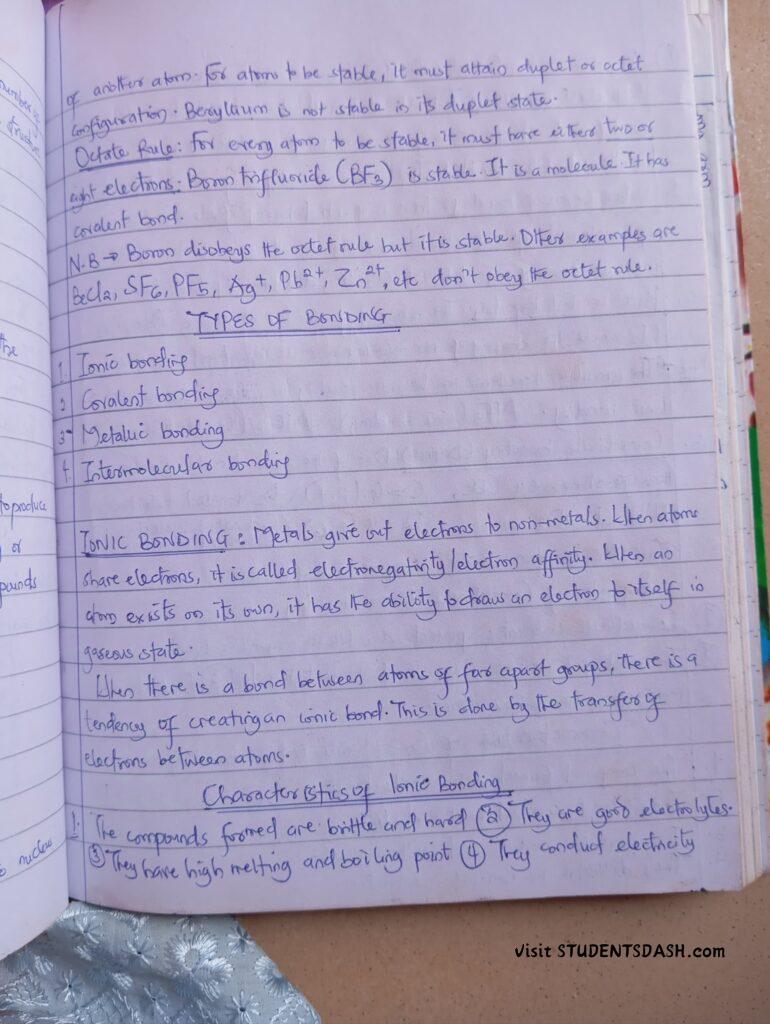 of another atom. For atoms to be stable, it must attain duplet or octet
configuration. Beryllium is not stable in its duplet state.
Octate Rule: For every atom to be stable, it must have either two or
eight electrons. Boron trifluoride (BF3) is stable. It is a molecule. It has
covalent bond.
N.B → Boron disobeys the octet rule but it is stable. Other examples are
BeCl2, SF6, PF5, Ag+, Pb2+, Zn2+, etc don't obey the octet rule.
TYPES OF BONDING
1. Ionic bonding
2 Covalent bonding
3 Metallic bonding
4. Intermolecular bonding
IONIC BONDING: Metals give out electrons to non-metals. When atoms
share electrons, it is called electronegativity/electron affinity. When an
atom exists on its own, it has the ability to draw an electron to itself in
gaseous state.
When there is a bond between atoms of far apart groups, there is a
tendency of creating an ionic bond. This is done by the transfer of
electrons between atoms.
Characteristics of Ionic Bonding
1. The compounds formed are brittle and hard (2) They are good electrolytes.
(3) They have high melting and boiling point (4) They conduct electricity
number
the
to produce
or
nucleus
Visit STUDENTSDASH.com